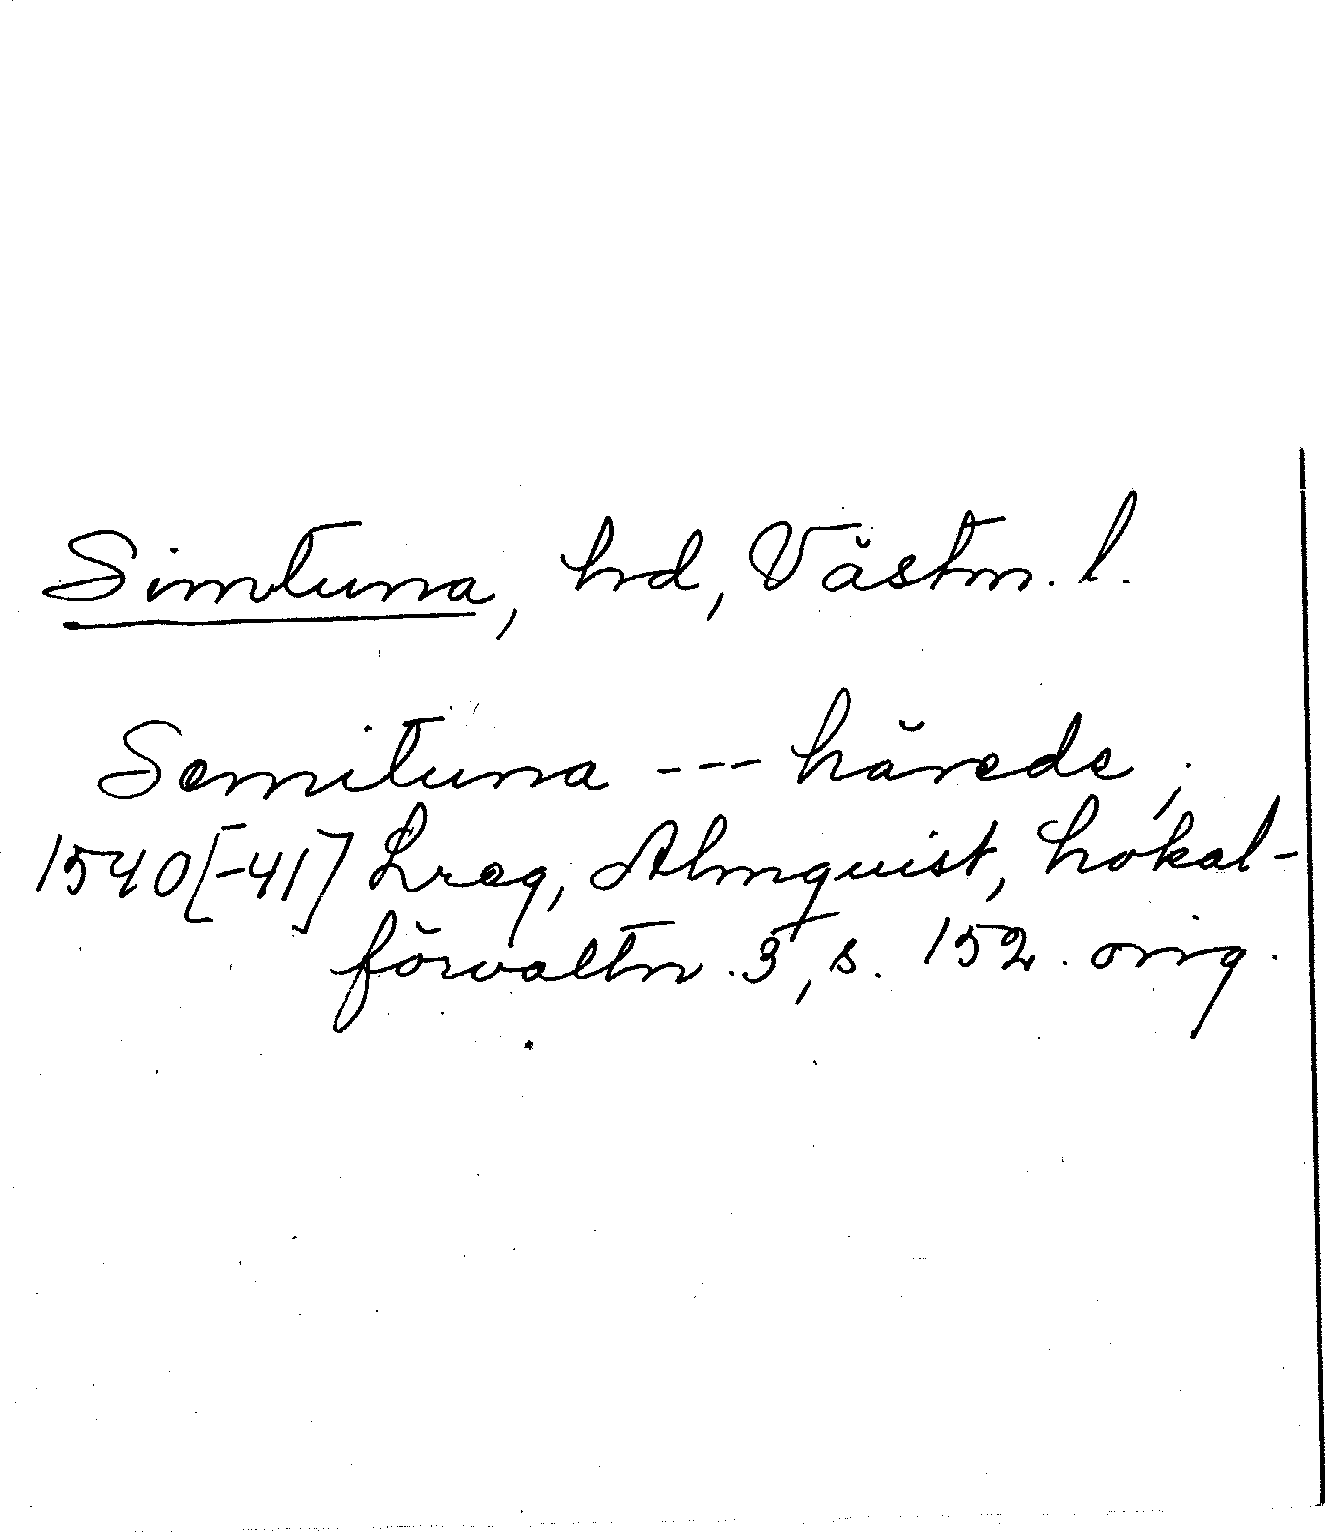 Simtuna, hrd, Västm. l.
Semituna --- härede,
1540[-41] Lreg, Almquist, Lokal-
förvaltn. 3, s. 152. orig.